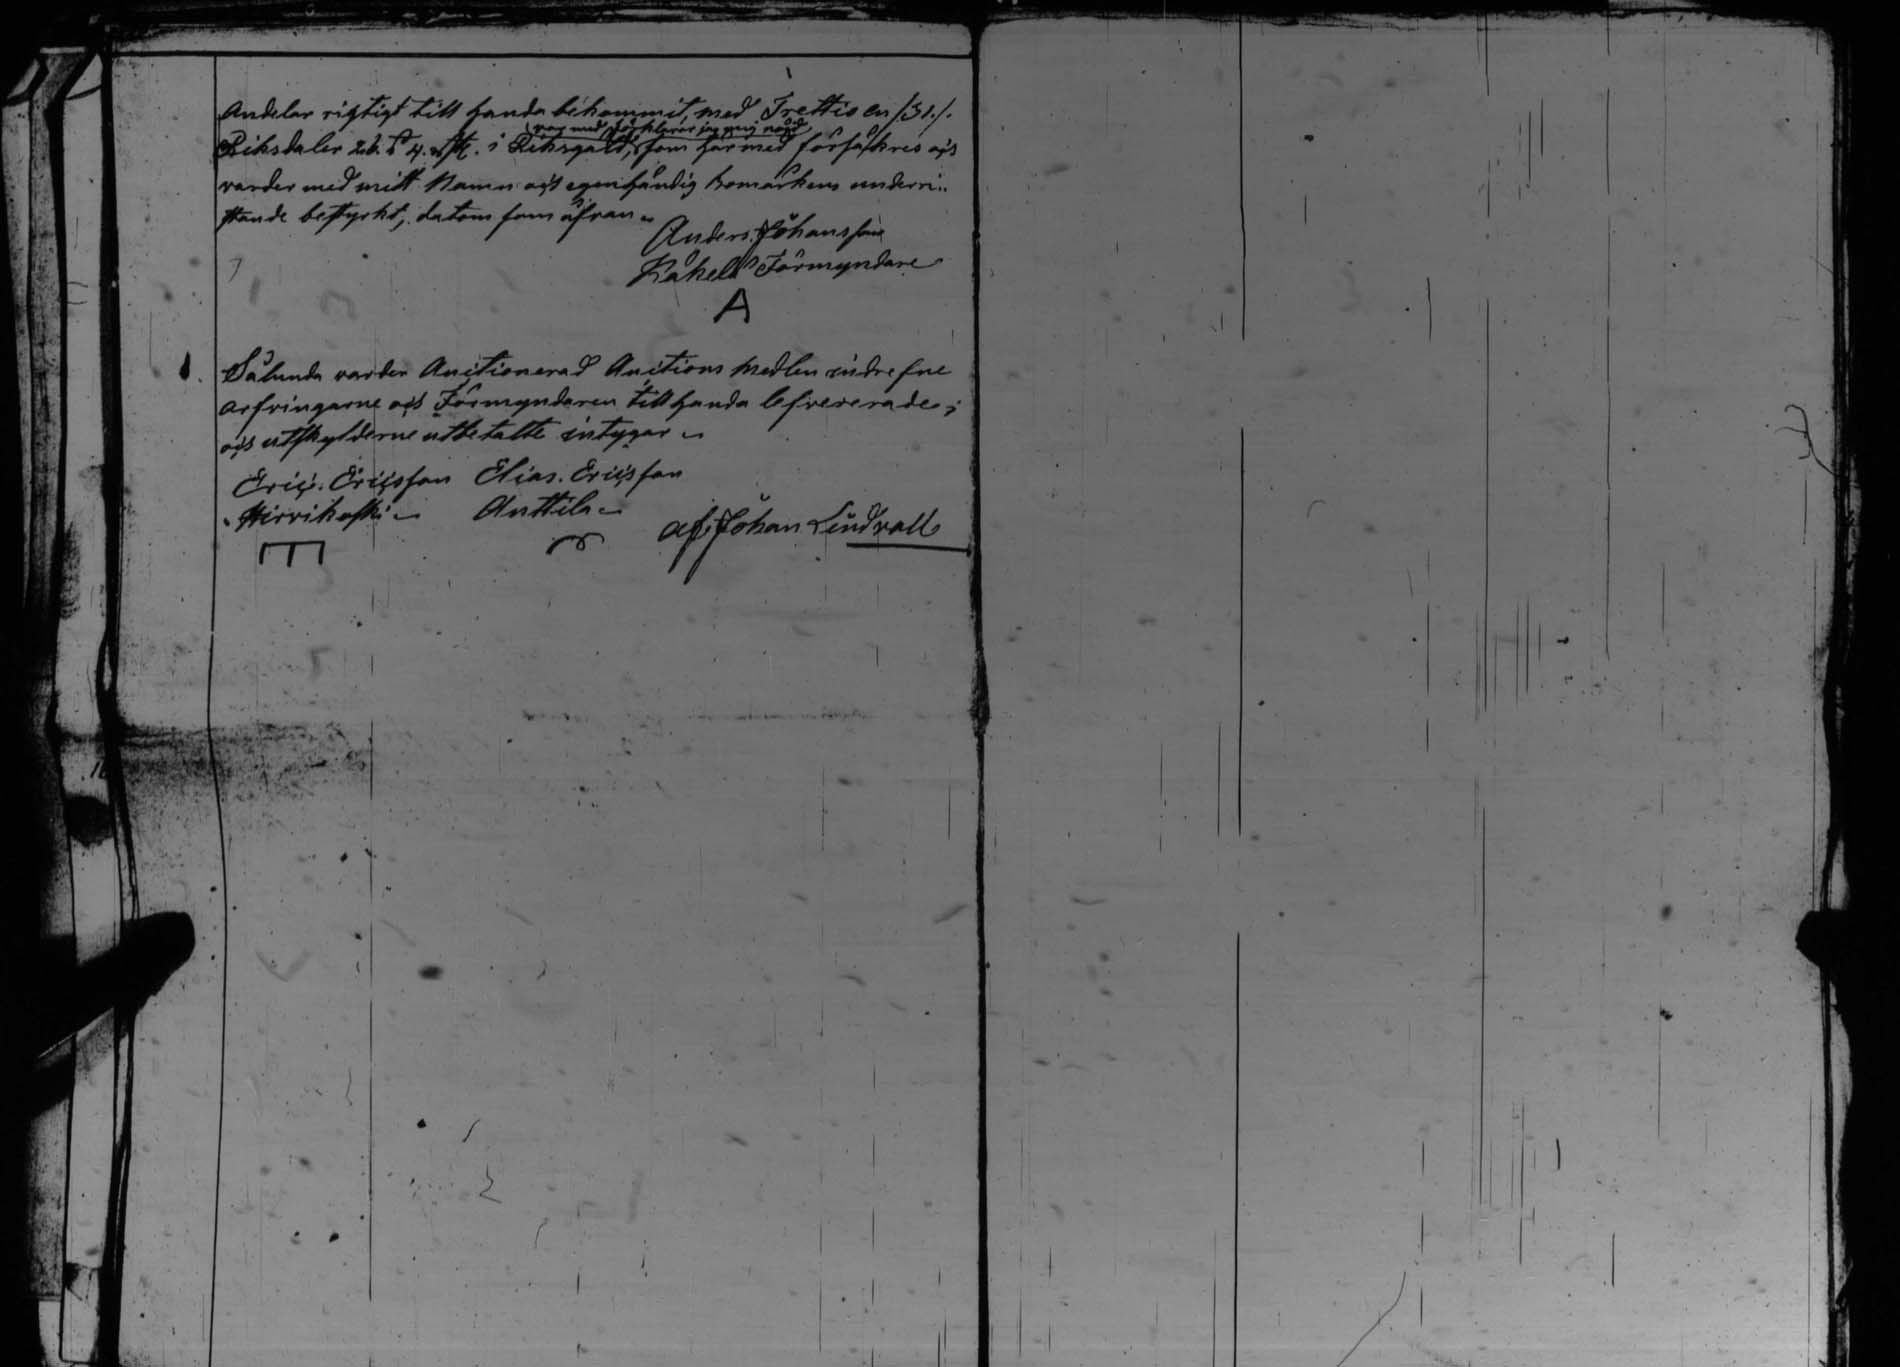 Andelar rigtigt till handa bekommit, med Trettio en /31./.
var med förklarar jag mig nögd
Riksdaler 26. s 4. rst. i Riksgäld, som härmed försäkres och
varder med mitt Namn och egenhändig bomärkens underri..
stande bestyrkt, datum som åfvan
Anders Johansson
Kåkelä Förmyndare
A
Sålunda varder Auctionerad Auctions Medlen
arfvingarne och Förmyndaren till handa lefvererade;
och utskylderne utbetalte intygar
Eric. Ericsson Elias. Ericsson
Hirvikoski Anttila
af Johan Lindvall